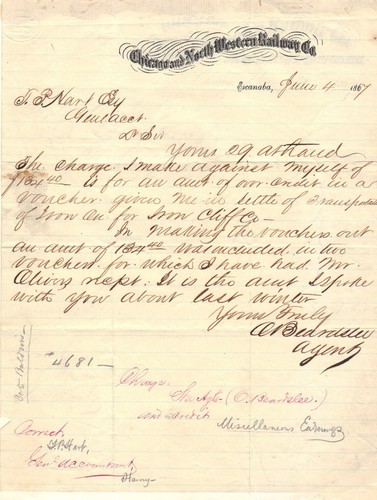 Chicago and North Western Railway Co.
Escanaba, June 4 1867
T. P. Hart Esq
Genl acct
D Sir
Yours 29 at hand
The charge I make against myself of
134 40 is for an amt of over credit in a
voucher given me in settle of transportn
of Iron Ore for Iron Cliff Co
In making the vouchers out
an amt of 134 40 was included in two
vouchers for which I have had Mr.
rcpt. It is the amt I spoke
with you about last winter
Yours Truly
O Beardslee
Agent
4681
Charge
Agt. (O. Beardslee.)
and credit
Miscellaneous Earnings
Correct,
T. P. Hart,
Genl accountant,